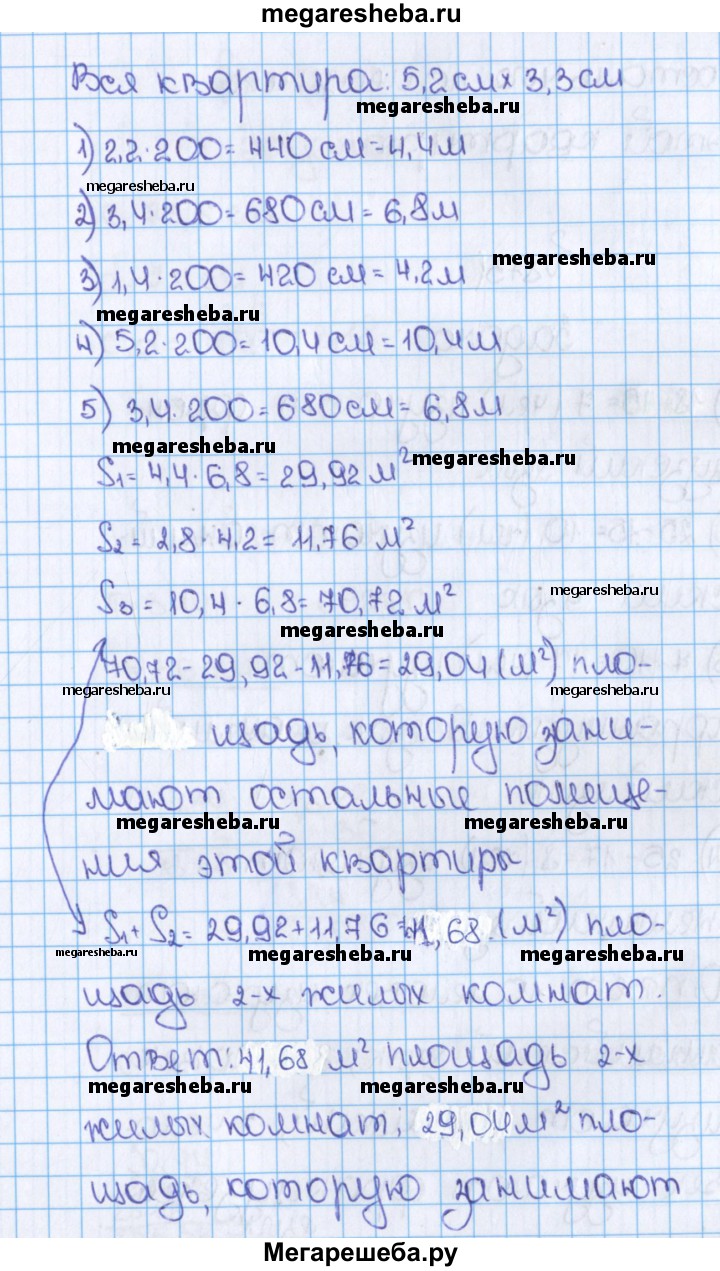 megaresheba.ru
Вся квартира: 5,2 см х 3,3 см
megaresheba.ru
1) 2,2·200=440 см=4,4м
megaresheba.ru
2) 3,4·200=680 см=6,8м
megaresheba.ru
3) 1,4·200=420 см=4,2м
megaresheba.ru
4) 5,2·200=10,4 см=10,4м
5) 3,4·200=680 см=6,8м
megaresheba.ru megaresheba.ru
S₁=4,4·6,8=29,92 м²
S₂=2,8·4,2=11,76 м²
megaresheba.ru
S₃=10,4·6,8=70,72 м²
megaresheba.ru
70,72-29,92-11,76=29,04 (м²) пло-
megaresheba.ru megaresheba.ru
щадь, которую зани-
мают остальные помеще-
megaresheba.ru megaresheba.ru
ния этой квартиры
S₁+S₂=29,92+11,76=41,68 (м²) пло-
megaresheba.ru megaresheba.ru megaresheba.ru
щадь 2-х жилых комнат.
Ответ: 41,68 м² площадь 2-х
megaresheba.ru megaresheba.ru
жилых комнат; 29,04м² пло-
щадь, которую занимают
Мегарешеба.ру